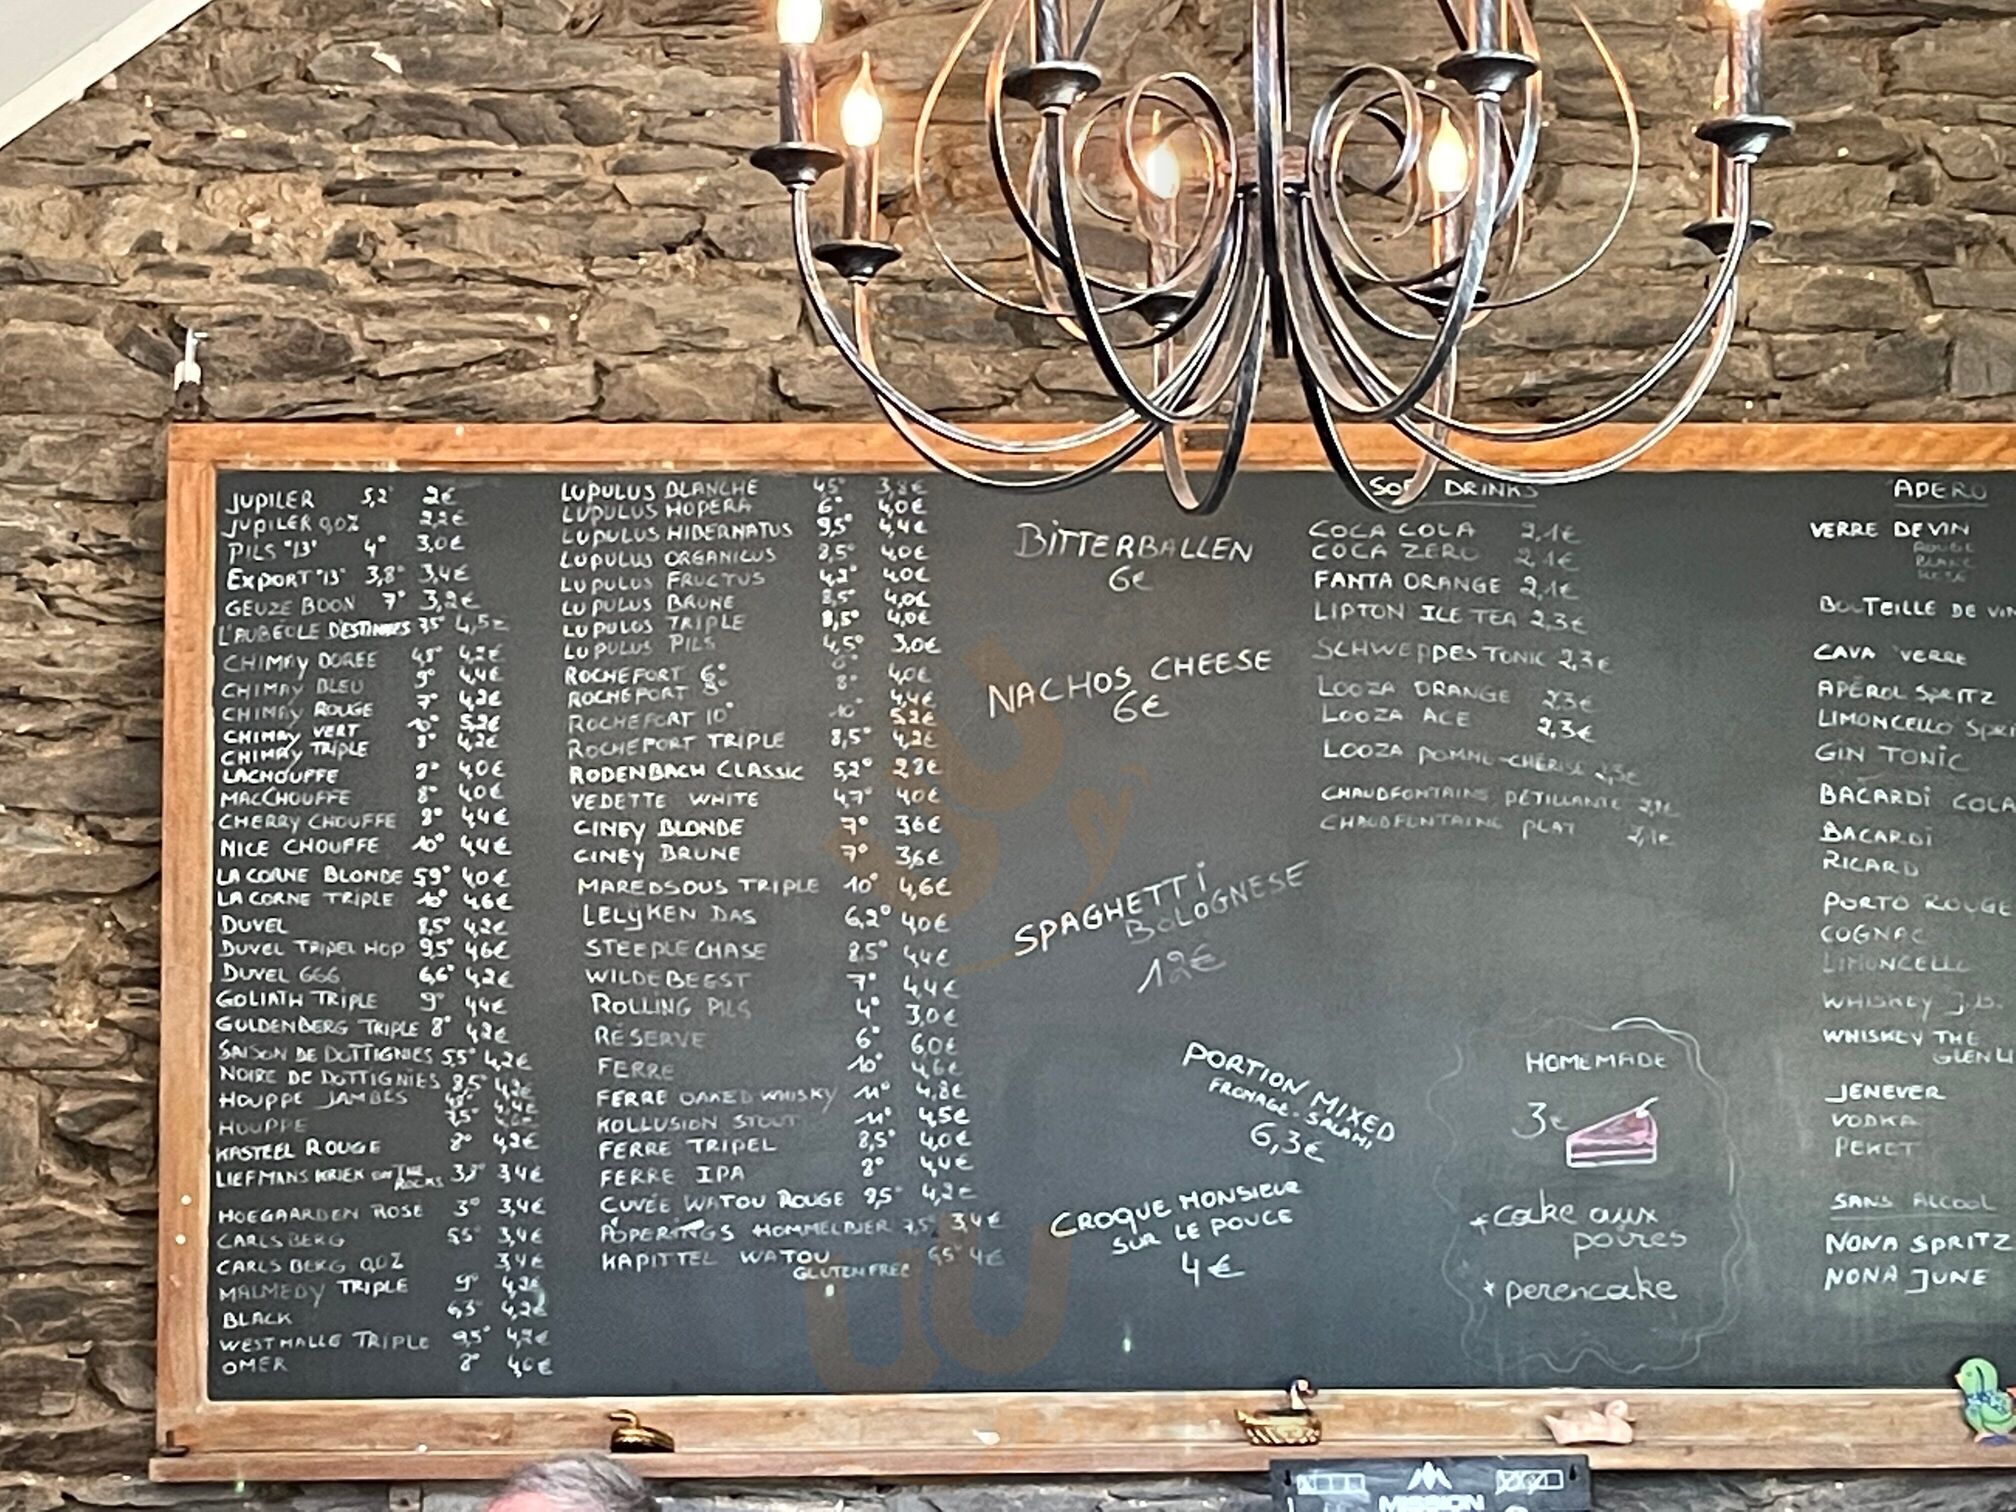 JUPILER 5,2° 2€
JUPILER 0,0% 2,2€
PILS "13" 4° 3,0€
EXPORT "13" 3,8° 3,4€
GEUZE BOON 7° 3,2€
CHIMAY DOREE 4,8° 4,2€
CHIMAY BLEU 9° 4,4€
CHIMAY ROUGE 7° 4,2€
CHIMAY VERT 10° 5,2€
CHIMAY TRIPLE 8° 4,2€
LACHOUFFE 8° 4,0€
MACCHOUFFE 8° 4,0€
CHERRY CHOUFFE 8° 4,4€
NICE CHOUFFE 10° 4,4€
LA CORNE BLONDE 59° 4,0€
LA CORNE TRIPLE 10° 4,6€
DUVEL 8,5° 4,2€
DUVEL TRIPEL HOP 9,5° 4,6€
DUVEL 666 6,6° 4,2€
GOLIATH TRIPLE 9° 4,4€
GULDENBERG TRIPLE 8° 4,2€
SAISON DE DOTTIGNIES 5,5° 4,2€
NOIRE DE DOTTIGNIES 8,5° 4,2€
HOUPPE JAMBES
HOUPPE 7,5°
KASTEEL ROUGE 8° 4,2€
LIEFMANS KRIEK ON THE ROCKS 3,4€
HOEGAARDEN ROSE 3° 3,4€
CARLSBERG 5,5° 3,4€
CARLSBERG 0,0% 3,4€
MALMEDY TRIPLE 9° 4,2€
BLACK 6,3° 4,2€
WESTMALLE TRIPLE 9,5° 4,2€
OMER 8° 4,6€
LUPULUS BLANCHE 4,5° 3,8€
LUPULUS HOPERA 6° 4,0€
LUPULUS HIBERNATUS 9,5° 4,4€
LUPULUS ORGANICUS 8,5° 4,0€
LUPULUS FRUCTUS 4,2° 4,0€
LUPULUS BRUNE 8,5° 4,0€
LUPULUS TRIPLE 8,5° 4,0€
LUPULUS PILS 4,5° 3,0€
ROCHEFORT 6° 6° 4,0€
ROCHEFORT 8° 8° 4,4€
ROCHEFORT 10° 10° 5,2€
ROCHEFORT TRIPLE 8,5° 4,2€
RODENBACH CLASSIC 5,2° 2,8€
VEDETTE WHITE 4,7° 4,0€
CINEY BLONDE 7° 3,6€
CINEY BRUNE 7° 3,6€
MAREDSOUS TRIPLE 10° 4,6€
LELIJKEN DAS 6,2° 4,0€
STEEPLECHASE 8,5° 4,4€
WILDEBEEST 7° 4,4€
ROLLING PILS 4° 3,0€
RÉSERVE 6° 6,0€
FERRE 10° 4,6€
FERRE OAKED WHISKY 11° 4,8€
KOLLUSION STOUT 11° 4,5€
FERRE TRIPEL 8,5° 4,0€
FERRE IPA 8° 4,4€
CUVÉE WATOU ROUGE 9,5° 4,2€
POPERINGS HOMMELBIER 7,5° 3,4€
KAPITTEL WATOU 6,5° 4€
GLUTENFREE
BITTERBALLEN
6€
NACHOS CHEESE
6€
SPAGHETTI
BOLOGNESE
12€
PORTION MIXED
FROMAGE-SALAMI
6,3€
CROQUE MONSIEUR
SUR LE POUCE
4€
SOFT DRINKS
COCA COLA 2,1€
COCA ZERO 2,1€
FANTA ORANGE 2,1€
LIPTON ICE TEA 2,3€
SCHWEPPES TONIC 2,3€
LOOZA ORANGE 2,3€
LOOZA ACE 2,3€
LOOZA POMME-CHERISE 2,3€
CHAUDFONTAINE PETILLANTE 2,1€
CHAUDFONTAINE PLAT 2,1€
HOMEMADE
3€
*cake aux
poires
*perencake
APERO
VERRE DE VIN
ROUGE
BLANC
ROSE
BOUTEILLE DE VIN
CAVA VERRE
APÉROL SPRITZ
LIMONCELLO SPRI
GIN TONIC
BACARDI COLA
BACARDI
RICARD
PORTO ROUGE
COGNAC
LIMONCELLO
WHISKEY J.B.
WHISKEY THE
GLENLI
JENEVER
VODKA
PEKET
SANS ALCOOL
NONA SPRITZ
NONA JUNE
MISSION